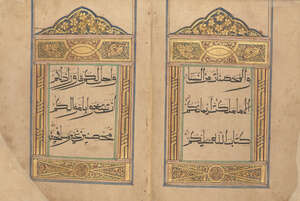 والمحصنات من النسا
الا ما ملكت ايمانكم
كتاب الله عليكم
واحل لكم ما ورا ذلكم
ان تبتغوا باموالكم
محصنين غير مسافحين